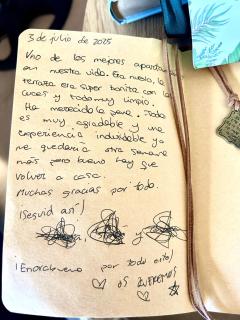 3 de julio de 2025
Uno de los mejores aparta
en nuestra vida. Era nuevo, la
terraza era super bonita con la
luces y todo muy limpio.
Ha merecido la pena. Todo
es muy agradable y una
experiencia inolvidable yo
me quedaría otra semana
más pero bueno hay que
volver a casa.
Muchas gracias por todo.
¡Seguid así!
y
¡Enorabuena por todo esto!
OS QUEREMOS